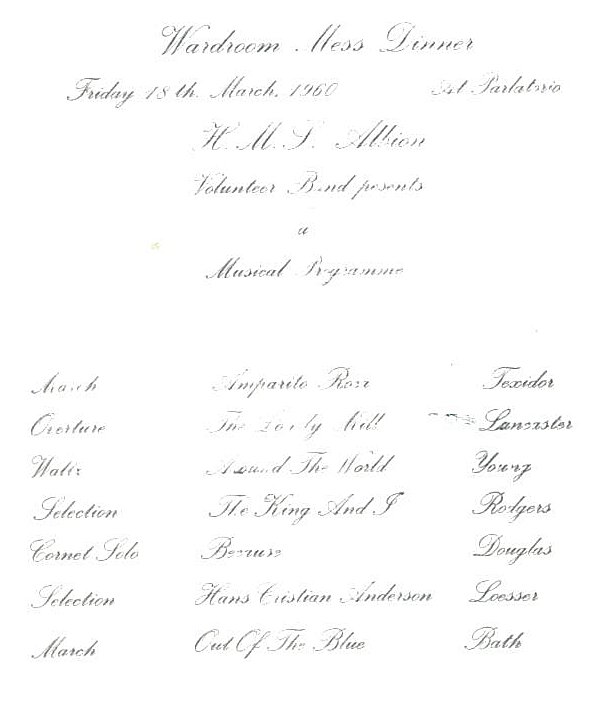 Wardroom Mess Dinner
Friday 18th. March, 1960 At Parlatorio
H.M.S. Albion
Volunteer Band pesents
a
Musical Programme
March Amparito Roca Texidor
Overture The Mill Lancaster
Waltz Around The World Young
Selection The King And I Rodgers
Cornet Solo Because Douglas
Selection Hans Cristian Anderson Loesser
March Out Of The Blue Bath